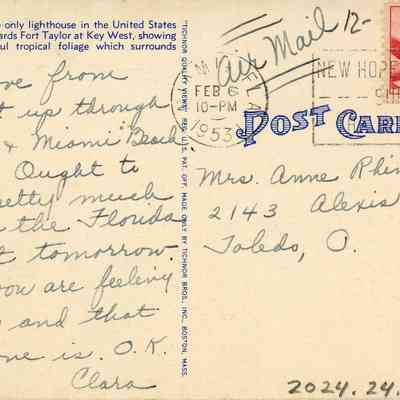 only lighthouse in the United States
ards Fort Taylor at Key West, showing
ul tropical foliage which surrounds
ve from
t up through
& Miami Beach
Ought to
etty much
the Florida
t tomorrow.
you are feeling
and that
one is. O.K.
Clara
"TICHNOR QUALITY VIEWS," REG. U.S. PAT. OFF. MADE ONLY BY TICHNOR BROS., INC., BOSTON, MASS.
Air Mail 12-
M
FLA
FEB 6
10-PM
1953
NEW HOPE
POST CARD
Mrs. Anne Rhin
2143 Alexis
Toledo, O.
2024.24.